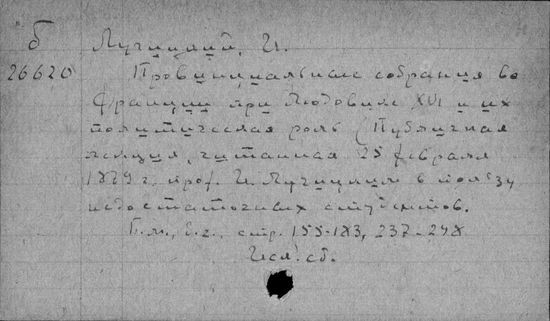 б Лучицкий, И.
26620 Провинциальные собрания во
Франции при Людовике XVI и их
политическая роль (Публичная
лекция, читанная 25 февраля
1879 г. проф. И. Лучицким в пользу
недостаточных студентов.
Б.м., б.г., стр. 155-183, 237-248